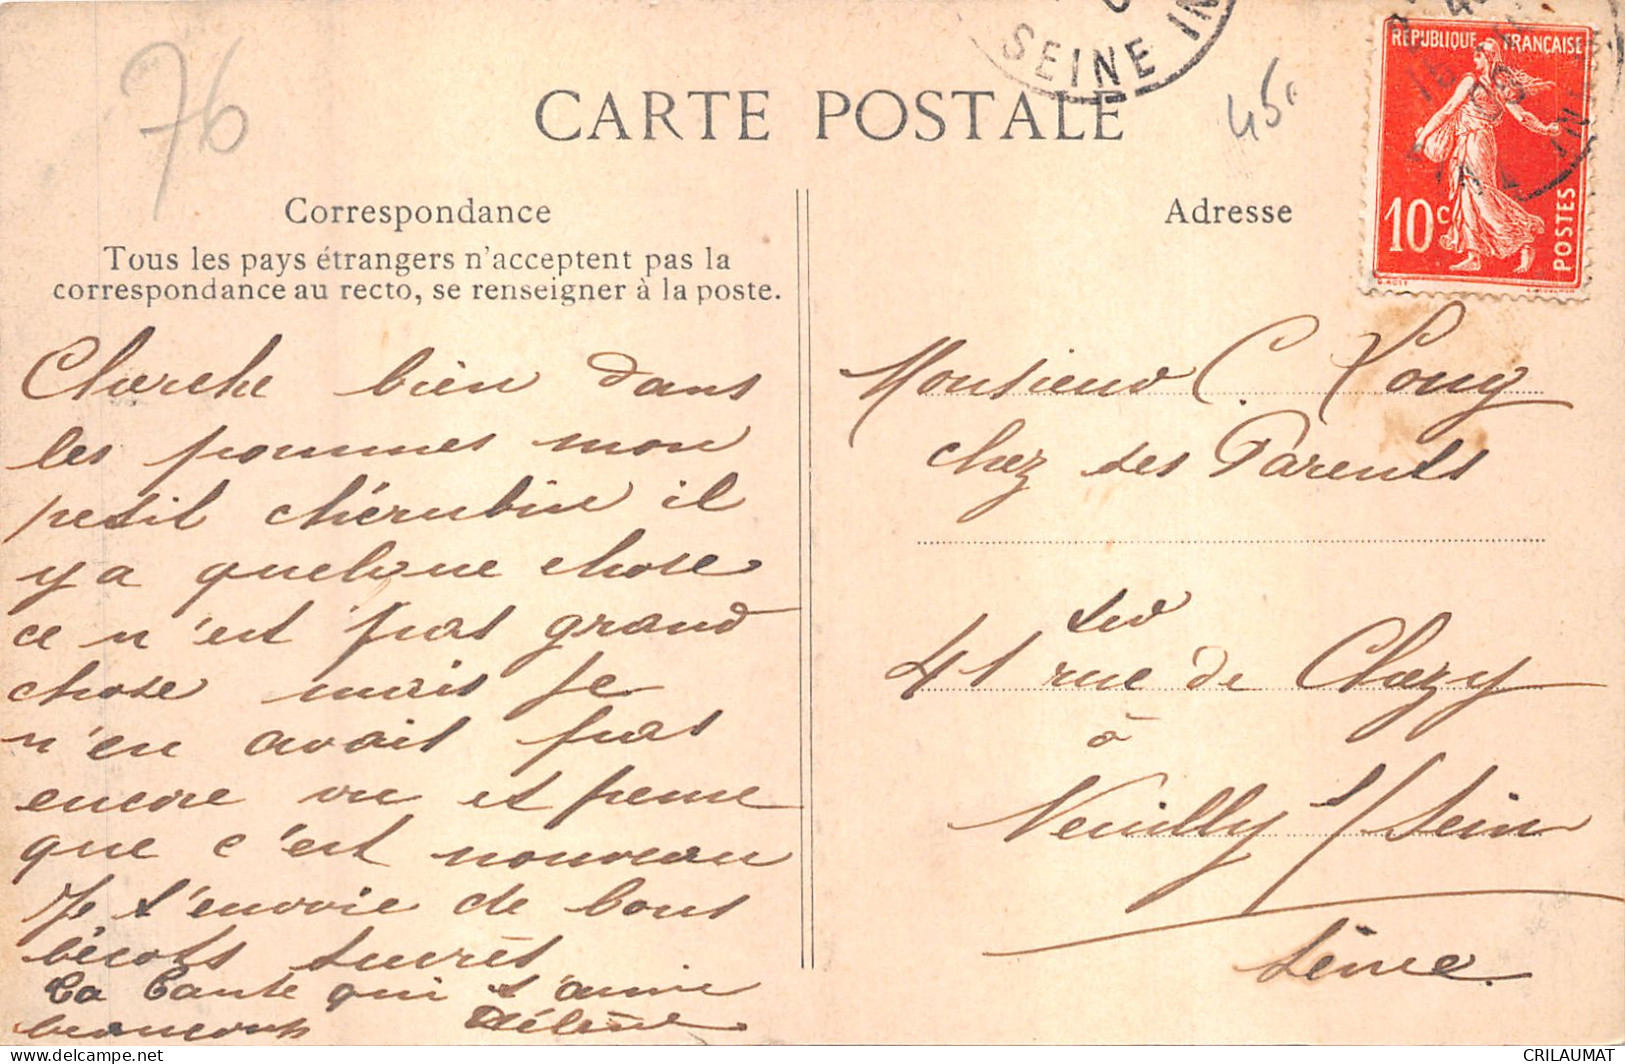 76
SEINE IN
45
CARTE POSTALE
REPUBLIQUE FRANÇAISE
10c
POSTES
Correspondance
Tous les pays étrangers n'acceptent pas la
correspondance au recto, se renseigner à la poste.
Cherche bien dans
les pommes mon
petit chérubin il
y a quelque chose
ce n'est pas grand
chose mais je
n'en avait pas
encore vu et pense
que c'est nouveau
Je t'envoie de bons
bécots sucrés
Ta Tante qui t'aime
beaucoup Hélène
Adresse
Monsieur C. Loug
chez ses Parents
41 ter rue de Chezy
à
Neuilly s/ Sein
Seine
CRILAUMAT